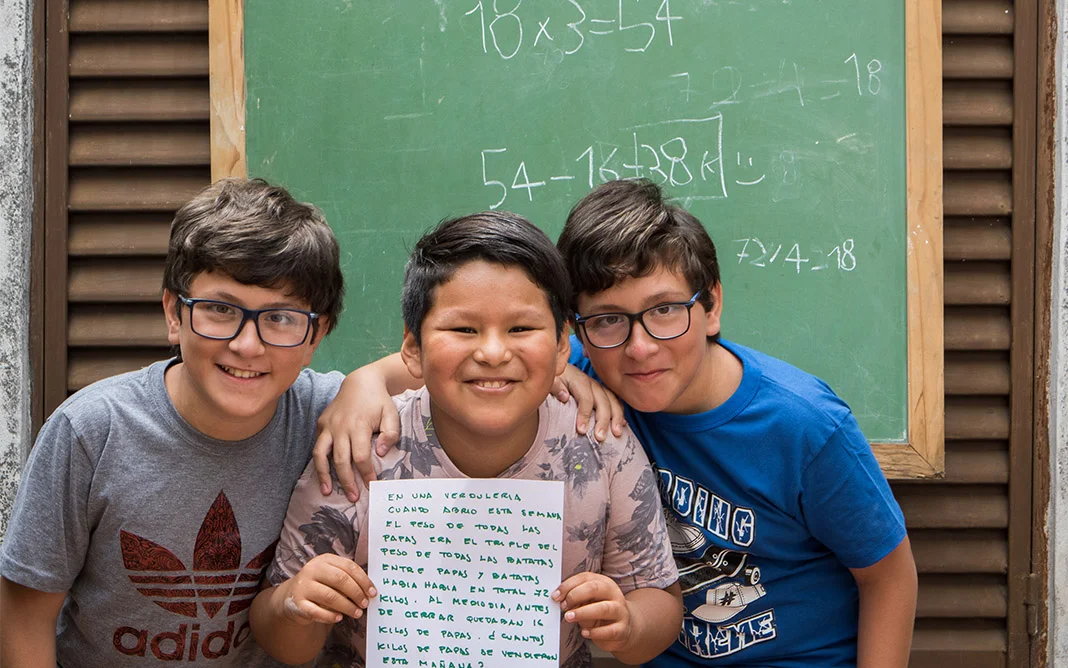 18x3=54
72÷4=18
54-16=38K
72/4=18
EN UNA VERDULERIA
CUANDO ABRIO ESTA SEMANA
EL PESO DE TODAS LAS
PAPAS ERA EL TRIPLE DEL
PESO DE TODAS LAS BATATAS
ENTRE PAPAS Y BATATAS
HABIA HABIA EN TOTAL 72
KILOS. AL MEDIODIA, ANTES
DE CERRAR QUEDABAN 16
KILOS DE PAPAS. ¿CUANTOS
KILOS DE PAPAS SE VENDIERON
ESTA MAÑANA?
adidas